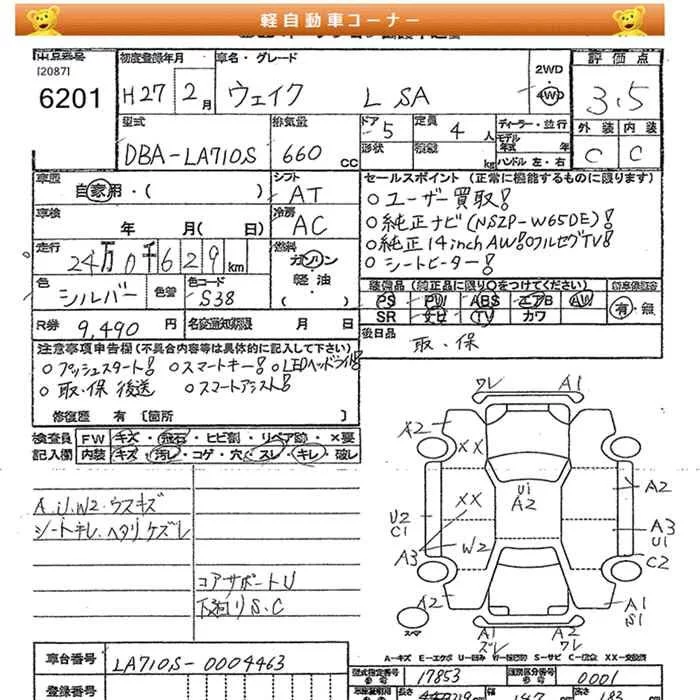 軽自動車コーナー
出品番号 初度登録年月 車名・グレード 2WD 評価点
[2087]
6201 H27 2月 ウェイク L SA 4WD 3.5
型式 排気量 ドア 5 定員 4人 ディーラー・並行 外装 内装
DBA-LA710S 660cc 形状 積載 kg モデル年式 年 C C
ハンドル 左・右
車歴 自家用・( ) シフト AT セールスポイント (正常に機能するものに限ります)
○ユーザー買取!
車検 年 月( 日) 冷房 AC ○純正ナビ(NSZP-W65DE)!
○純正14inchAW!○フルセグTV!
走行 24万0千629km 燃料 ガソリン ○シートヒーター!
軽油
色 シルバー 色替 色コード S38 装備品 (純正品に限り○をつけてください)
PS PW ABS エアB AW 有・無
SR ナビ TV カワ
R券 9,490円 名変通知期限 月 日 後日品
取・保
注意事項申告欄(不具合内容等は具体的に記入して下さい)
○プッシュスタート! ○スマートキー! ○LEDヘッドライト!
○取・保 後送 ○スマートアシスト!
修復歴 有 [箇所 ]
検査員 FW キズ・飛石・ヒビ割・リペア跡・×要
記入欄 内装 キズ・汚レ・コゲ・穴・スレ・キレ・破レ
ワレ A1
A2 XX
U1
A2
XX A2
U2
C1 A3
U1
A3 W2 C2
A2 A1
S1
スペア A1 A2
ズレ ワレ
A、U、W2、ウスキズ
シートキレ、ヘタリ、ケズレ
コアサポートU
下廻りS、C
A-キズ E-エクボ U-凹み W-補修跡 S-サビ C-腐食 XX-交換済
車台番号 LA710S-0004463
型式指定番号 17853 類別区分番号 0001
登録番号
長さ 幅 147 高さ 183